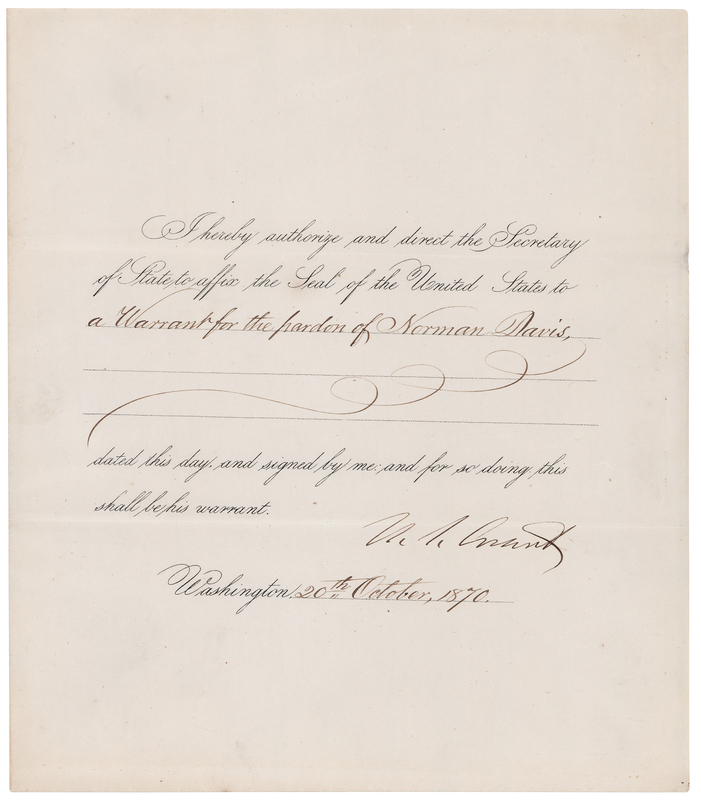 I hereby authorize and direct the Secretary
of State to affix the Seal of the United States to
a Warrant for the pardon of Norman Davis,
dated this day, and signed by me: and for so doing this
shall be his warrant.
U. S. Grant
Washington, 20th October, 1870.